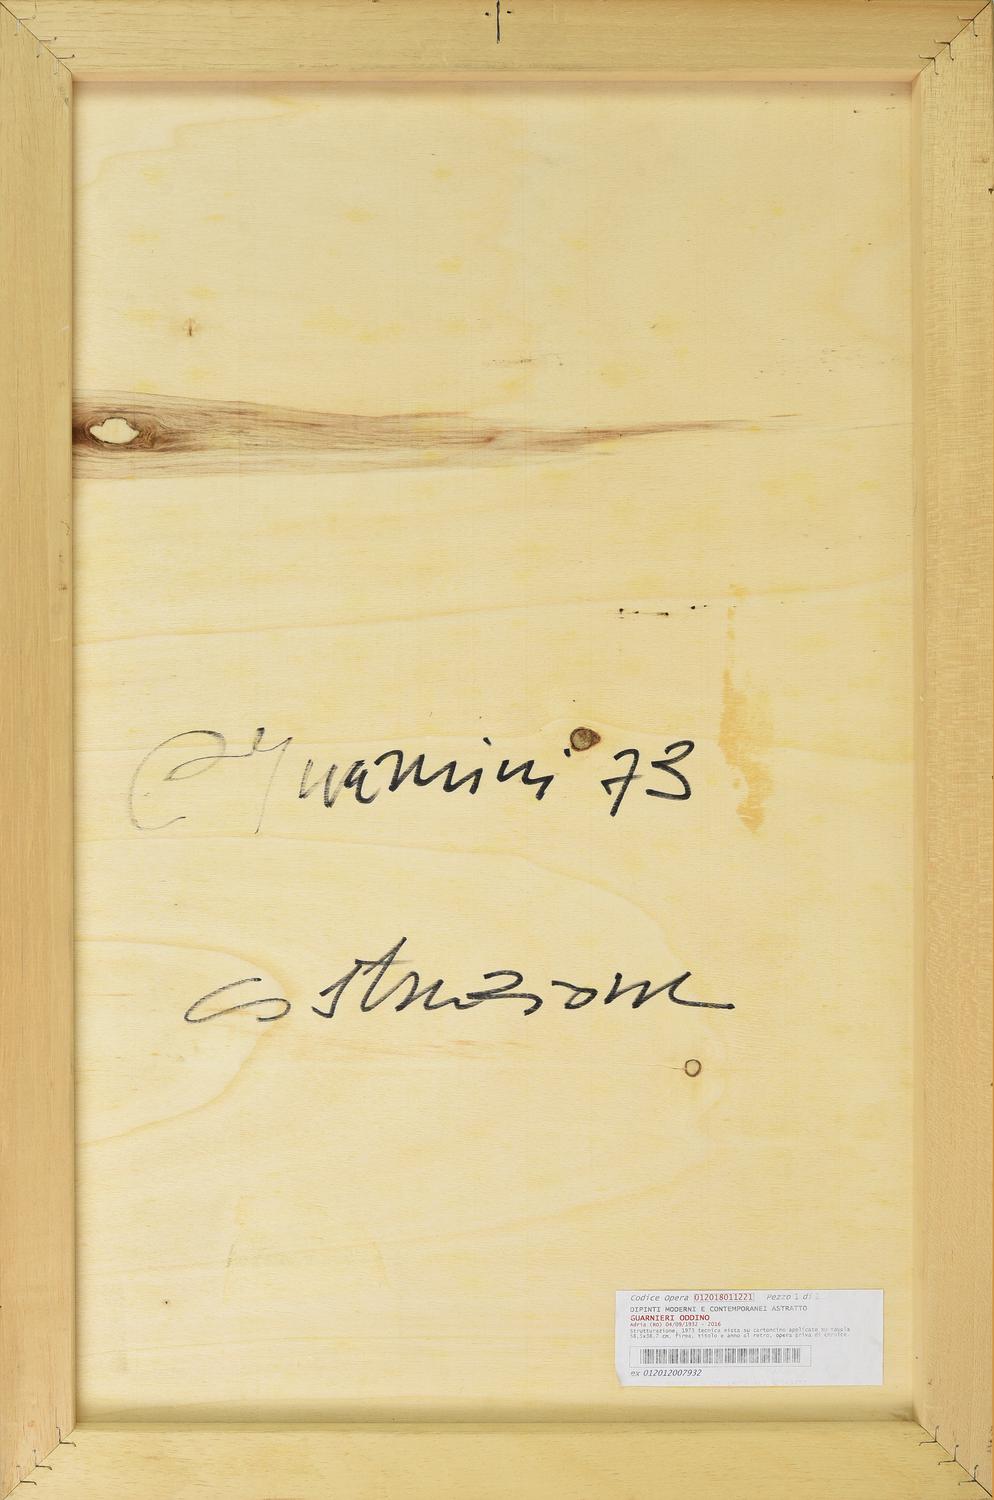 O Guarnieri 73
costruzione
Codice Opera 012018011221 Pezzo 1 di
DIPINTI MODERNI E CONTEMPORANEI ASTRATTO
GUARNIERI ODDINO
Adria (RO) 04/09/1932 - 2016
Strutturazione, 1973 tecnica mista su cartoncino applicato su tavola
58,5x38,7 cm, firma, titolo e anno al retro, opera priva di cornice.
ex 012012007932